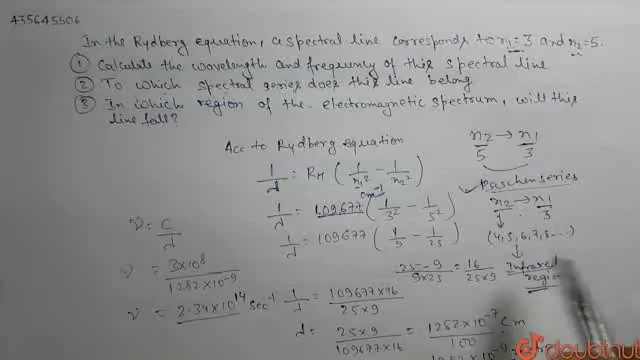 435645506
In the Rydberg equation, a spectral line corresponds to n1=3 and n2=5.
① Calculate the wavelength and frequency of this spectral line
② To which spectral series does this line belong
③ In which region of the electromagnetic spectrum, will this
line fall?
Acc to Rydberg equation
1/λ = RH (1/n1² - 1/n2²)
cm⁻¹
1/λ = 109677 (1/3² - 1/5²)
1/λ = 109677 (1/9 - 1/25)
25-9/9×25 = 16/25×9
1/λ = 109677×16/25×9
λ = 25×9/109677×16 = 1282×10⁻⁷/100 cm
1282×10⁻⁹
ν = c/λ
= 3×10⁸/1282×10⁻⁹
ν = 2.34×10¹⁴ sec⁻¹
n2 → n1
5 3
✓ Paschen series
n2 → n1
3
(4,5,6,7,8...)
Infrared
region
doubtnut